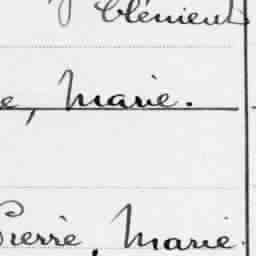 Clément
e, Marie.
Pierre, Marie